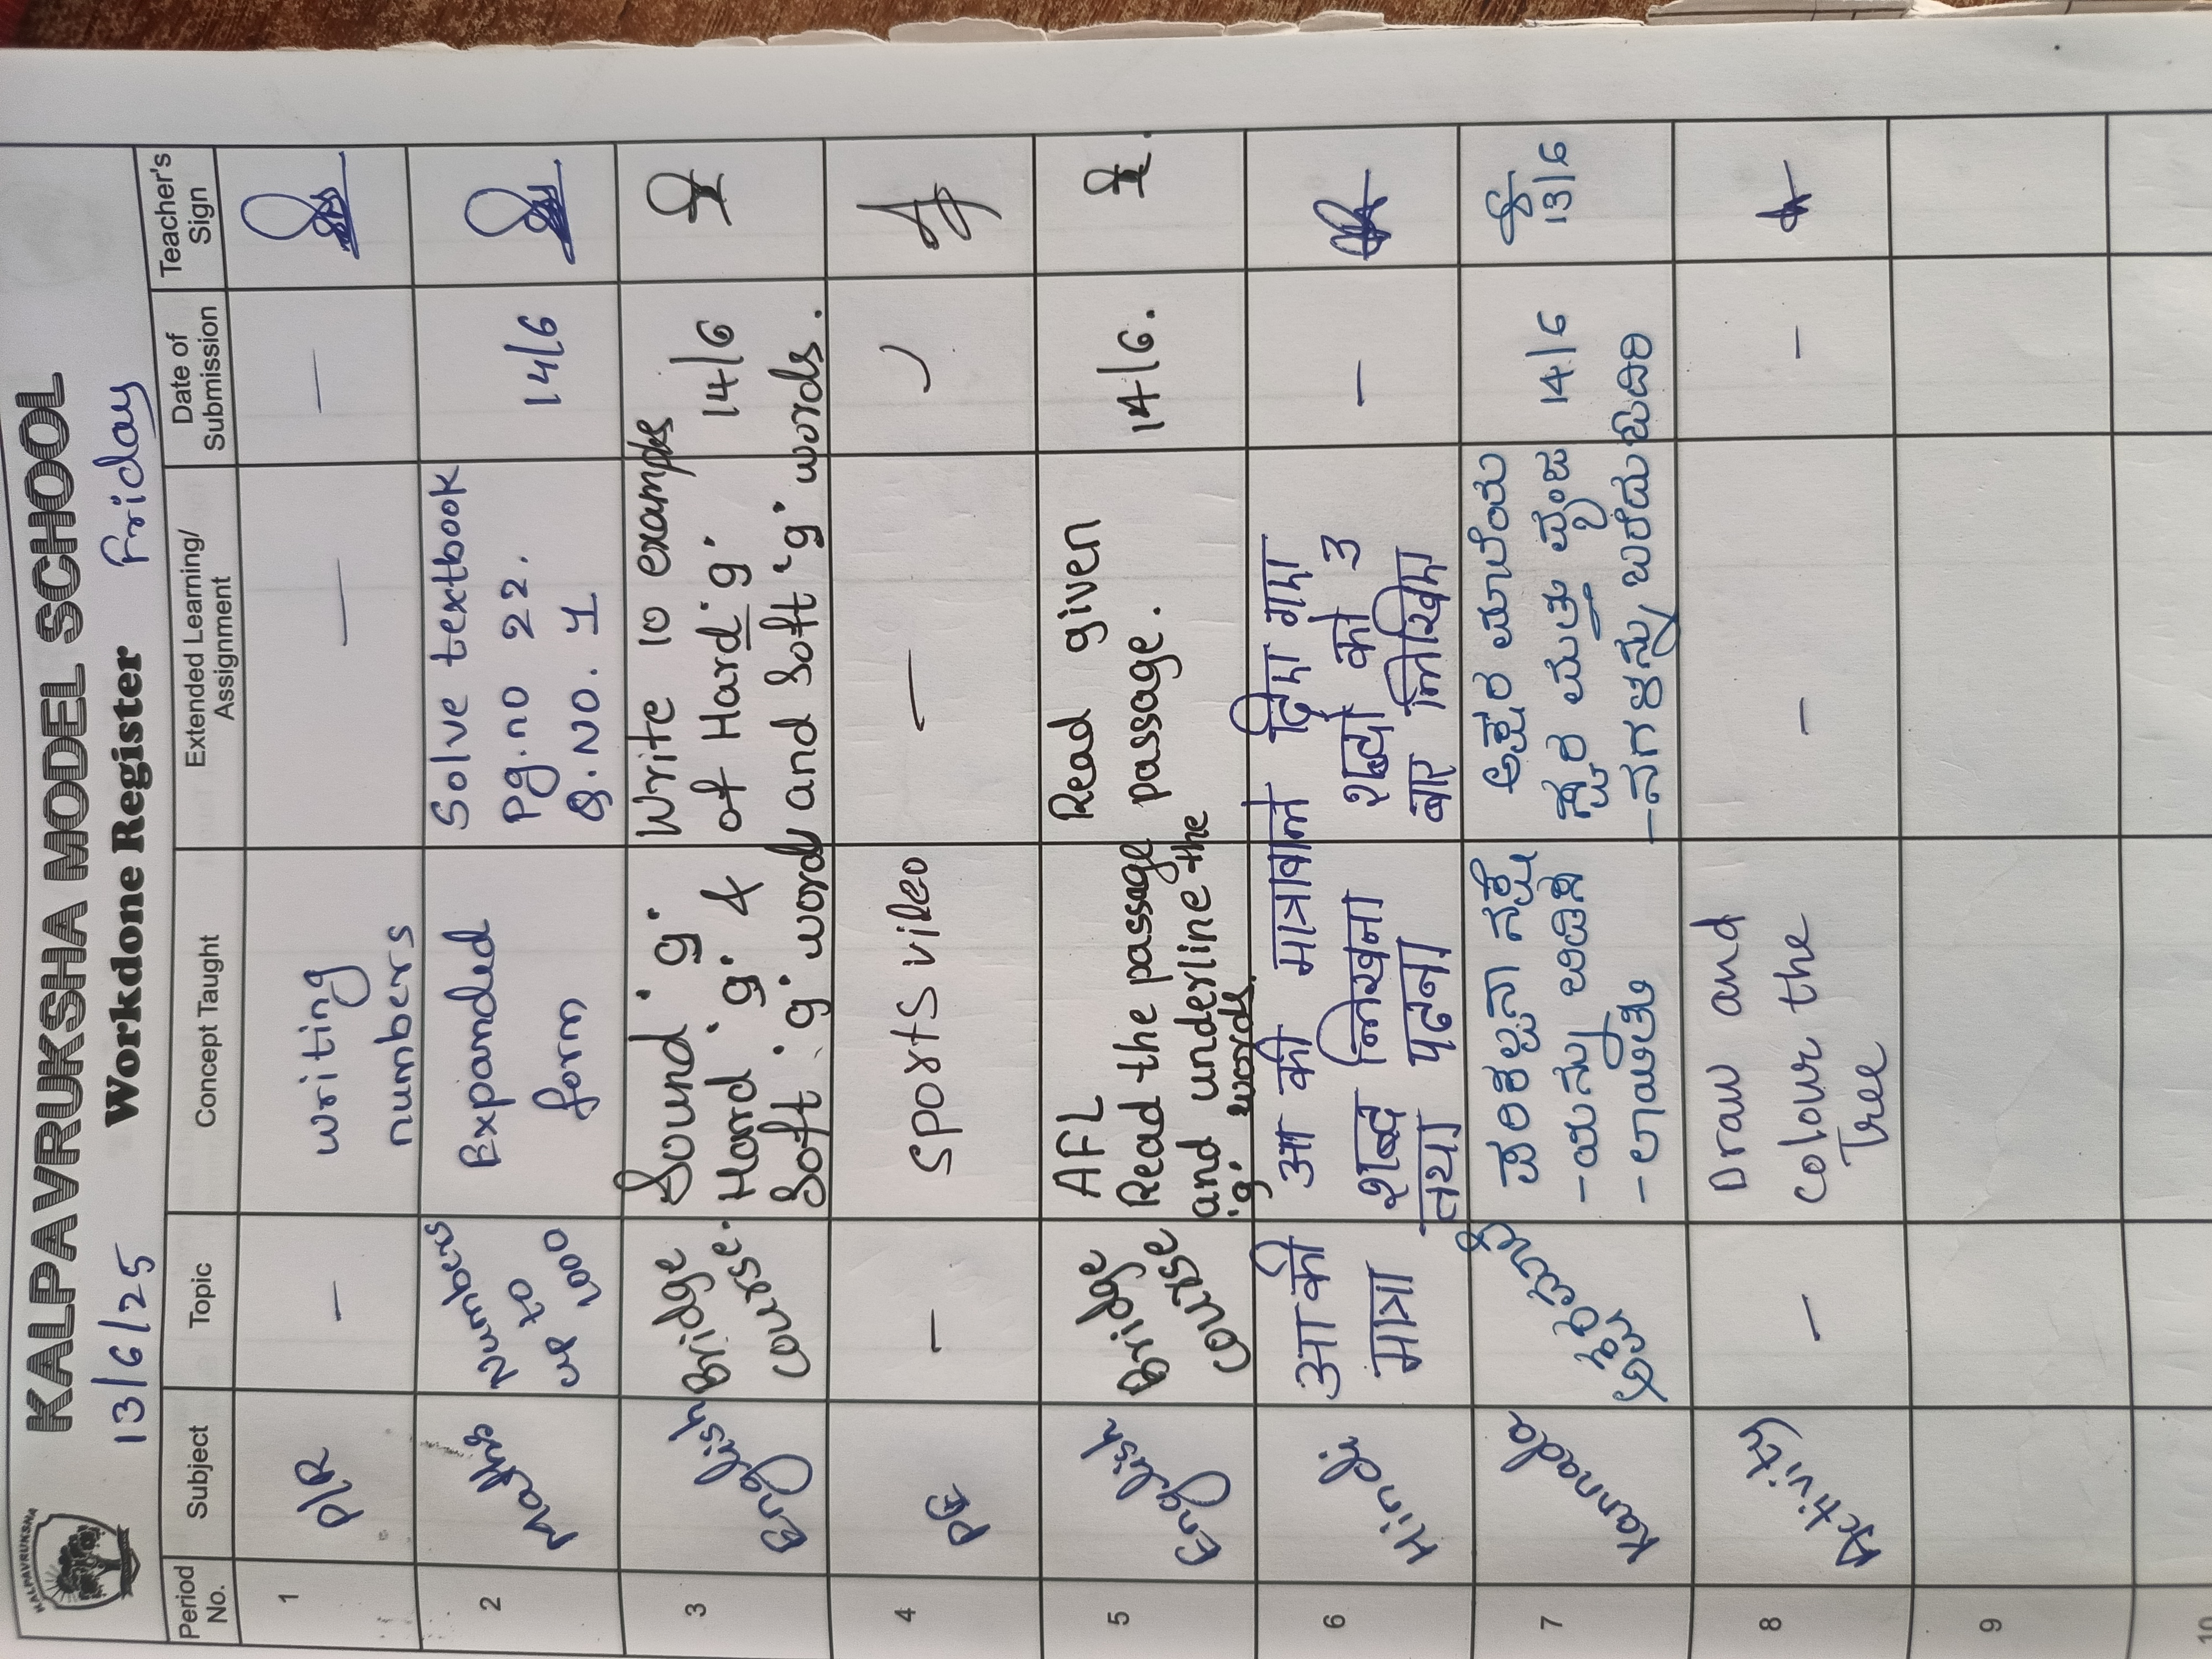 KALPAVRUKSHA
KALPAVRUKSHA MODEL SCHOOL
13/6/25 Workdone Register Friday
Period No. Subject Topic Concept Taught Extended Learning/ Assignment Date of Submission Teacher's Sign
1 PLR — writing numbers — —
2 Maths Numbers up to 1000 Expanded form Solve textbook Pg.no 22. Q.NO. 1 14/6
3 English Bridge course. Sound 'g' Hard 'g' & Soft 'g' words Write 10 examples of Hard 'g' and Soft 'g' words. 14/6
4 PE — Sports video —
5 English Bridge course AFL Read the passage and underline the 'g' words. Read given passage. 14/6.
6 Hindi आ की मात्रा आ की मात्रावाले शब्द लिखना तथा पढना दिया गया शब्दो को 3 बार लिखिए। —
7 Kannada ಪರಿಕಲ್ಪನಾ ನಕ್ಷೆ -ಯನ್ನು ಬಿಡಿಸ -ಲಾಯಿತು ಅಕ್ಷರ ಮಾಲೆಯ ಸ್ವರ ಮತ್ತು ವ್ಯಂಜ -ನಗಳನ್ನು ಬರೆದು 14/6 13/6
8 Activity — Draw and colour the Tree — —
9
10